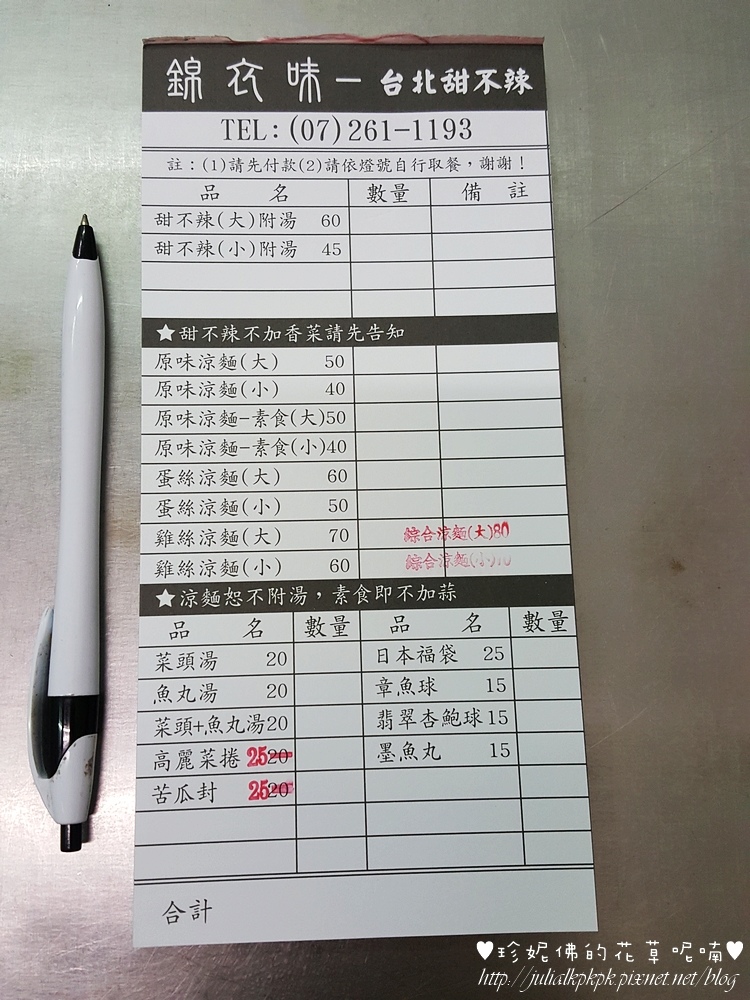 錦衣味－台北甜不辣
TEL:(07)261-1193
註：(1)請先付款(2)請依燈號自行取餐，謝謝！
品 名 數量 備 註
甜不辣(大)附湯 60
甜不辣(小)附湯 45
★甜不辣不加香菜請先告知
原味涼麵(大) 50
原味涼麵(小) 40
原味涼麵-素食(大)50
原味涼麵-素食(小)40
蛋絲涼麵(大) 60
蛋絲涼麵(小) 50
雞絲涼麵(大) 70 綜合涼麵(大)80
雞絲涼麵(小) 60 綜合涼麵(小)70
★涼麵恕不附湯，素食即不加蒜
品 名 數量 品 名 數量
菜頭湯 20 日本福袋 25
魚丸湯 20 章魚球 15
菜頭+魚丸湯20 翡翠杏鮑球15
高麗菜捲 2520 墨魚丸 15
苦瓜封 2520
合計
♥珍妮佛的花草呢喃♥
http://julialkpkpk.pixnet.net/blog